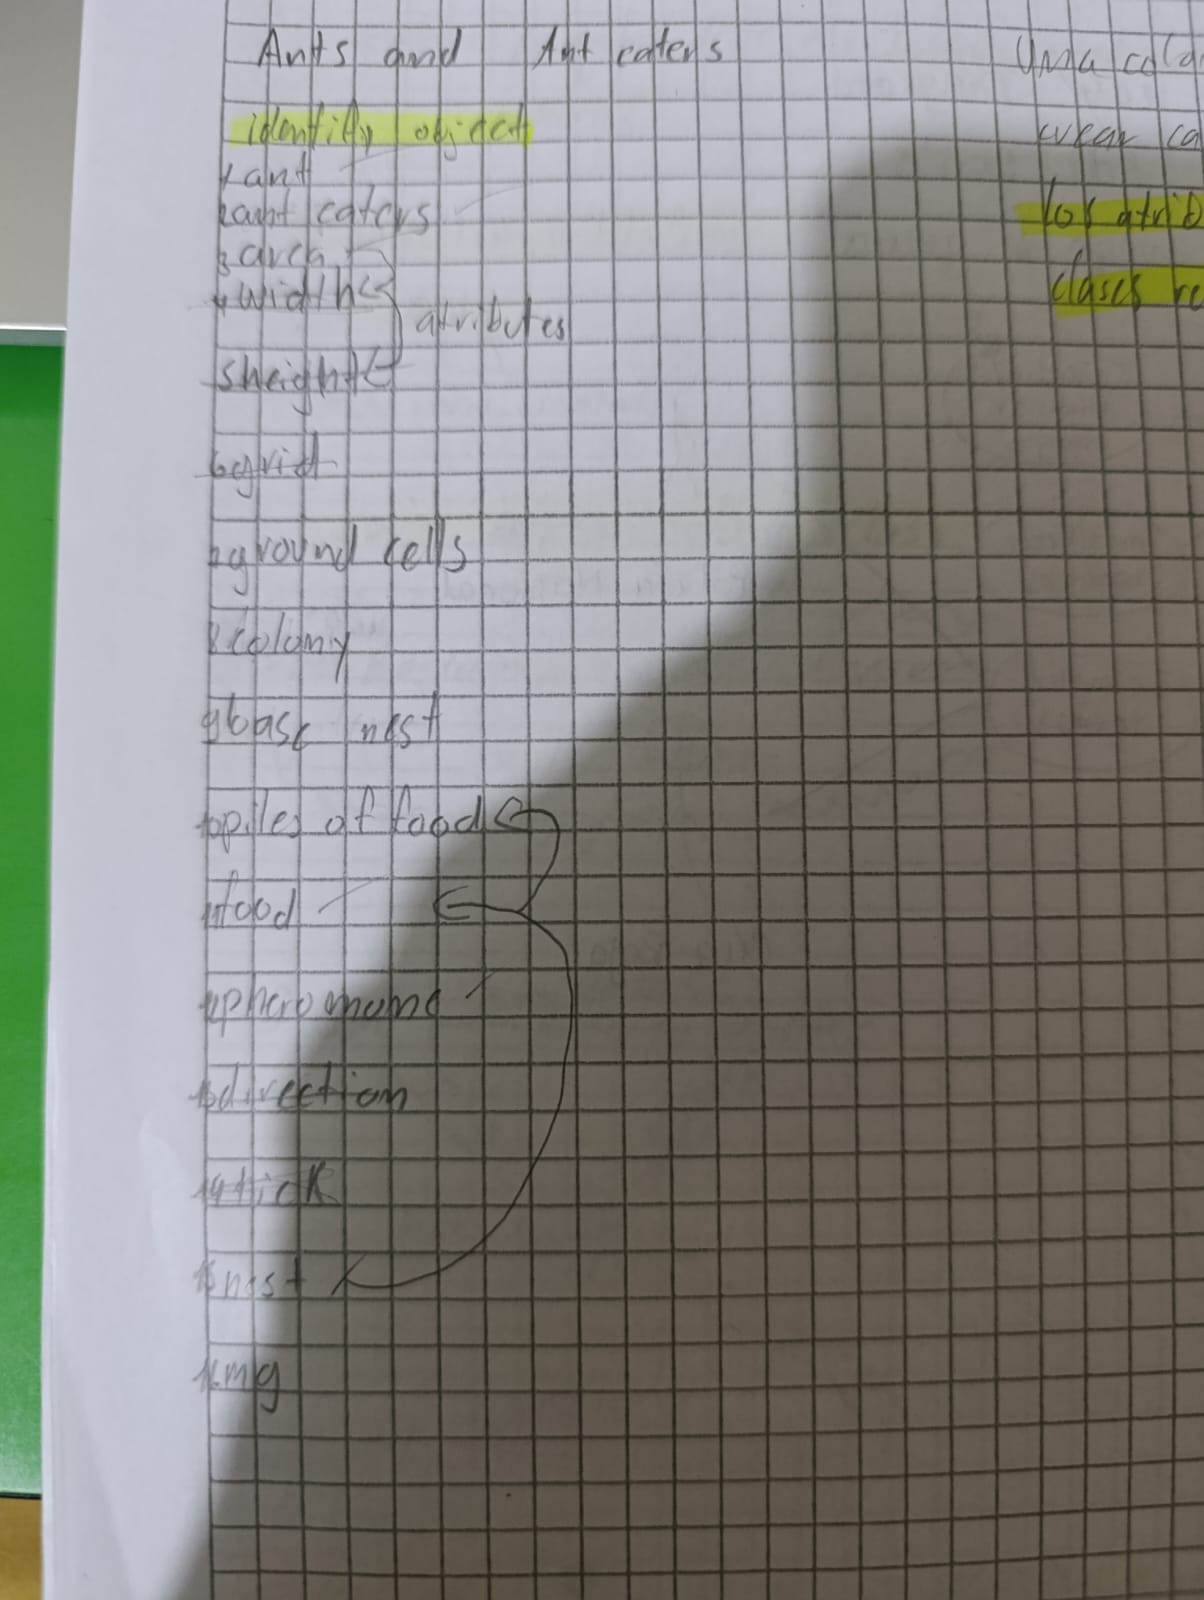 Ants and Ant eaters
identify object
1 ant
2 ant eaters
3 area
4 width
atributes
5 height
6 grid
7 ground cells
8 colony
9 base nest
10 piles of food
11 food
12 pheromone
13 direction
14 tick
15 nest
16 mg
Una cola
crear ca
los atrib
clases re